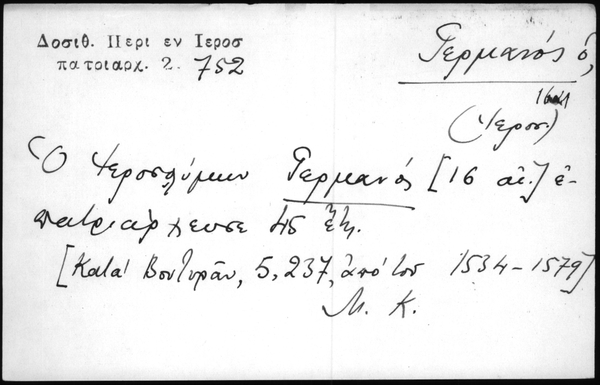 Δοσιθ. Περι εν Ιεροσ
πατριαρχ. 2. 752
Γερμανός ὁ,
(Ἱεροσ.)
Ὁ Ἱεροσολύμων Γερμανός [16 αἰ.] ἐ-
πατριάρχευσε 45 ἔτη.
[Κατά Βουτυρᾶν, 5, 237, ἀπό τοῦ 1534-1579]
Μ. Κ.